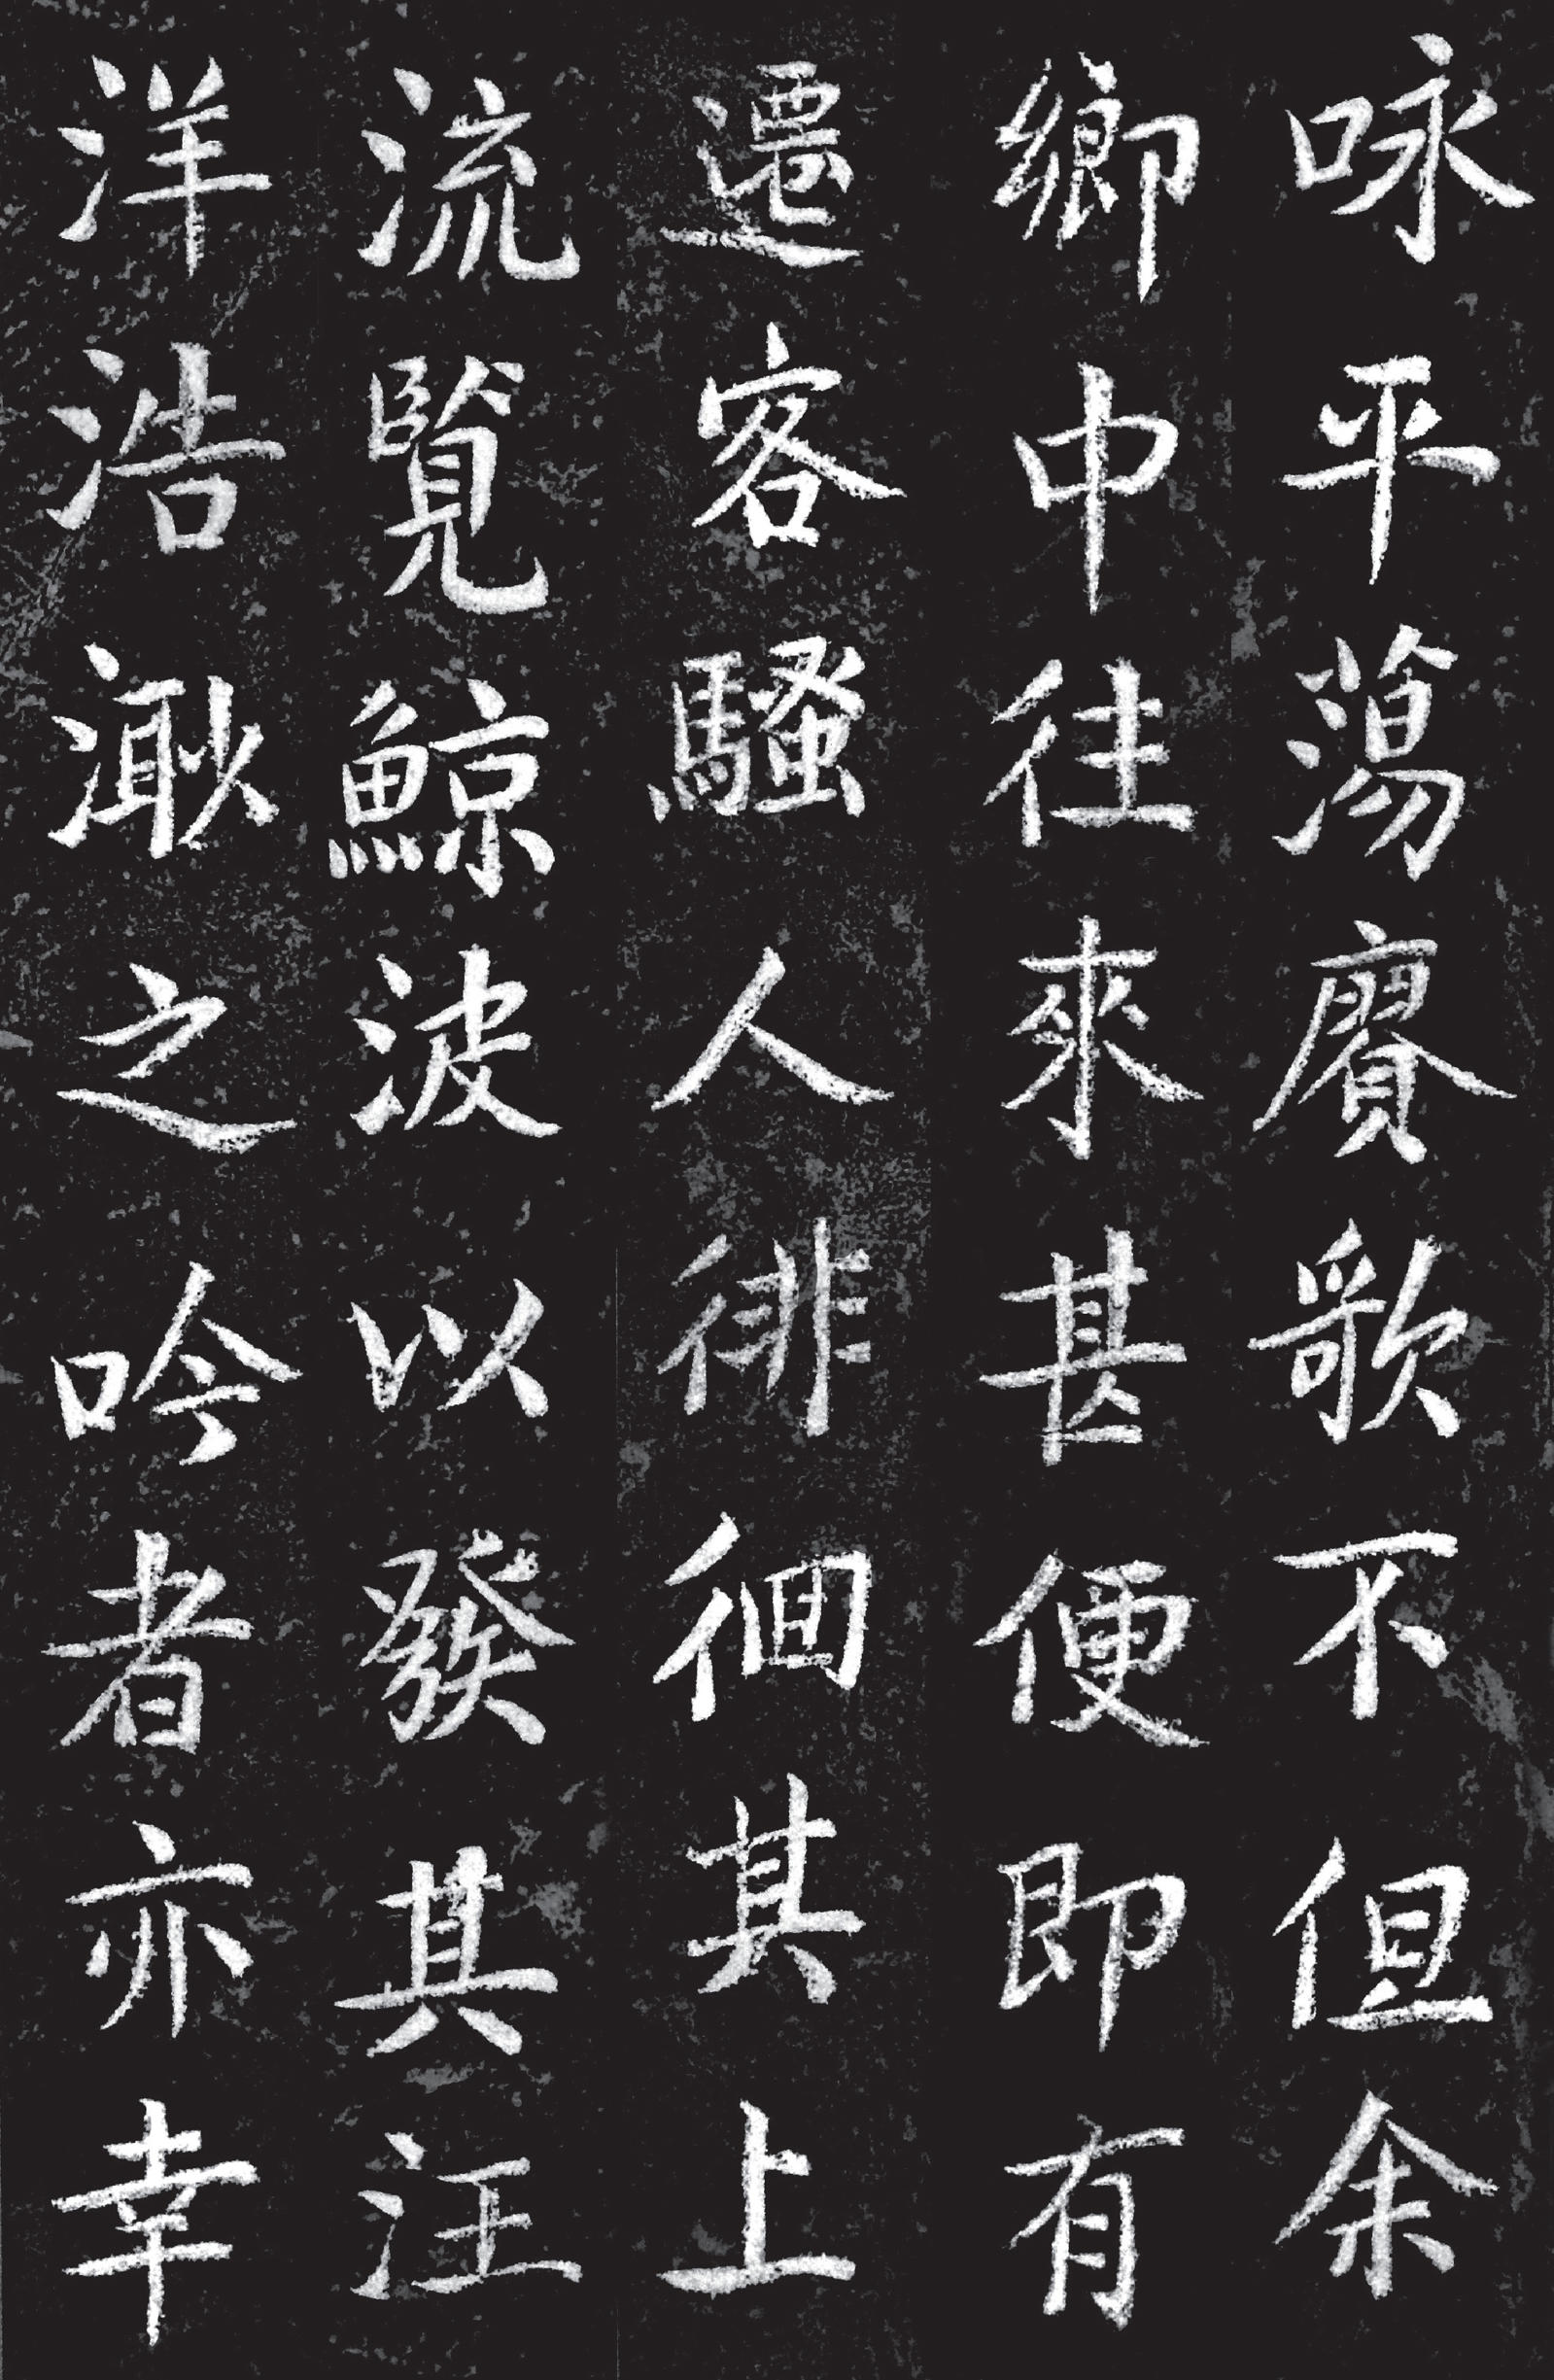 咏平蕩賡歌不但余
鄉中往來甚便即有
遷客騷人徘徊其上
流覽鯨波以發其汪
洋浩渺之吟者亦幸